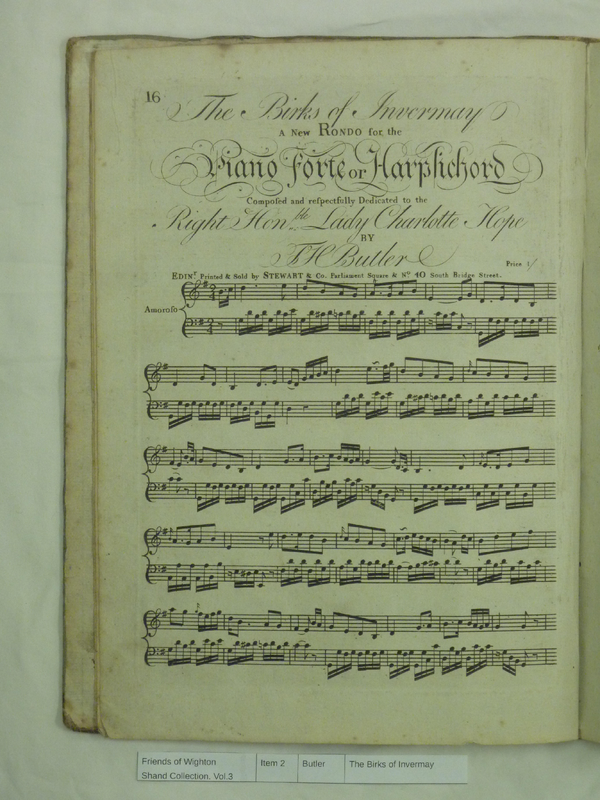 16
The Birks of Invermay
A New RONDO for the
Piano Forte or Harpsichord
Compoſed and reſpectfully Dedicated to the
Right Honble Lady Charlotte Hope
BY
T H Butler
Price 1/
EDINr Printed & Sold by STEWART & Co. Parliament Square & No 40 South Bridge Street.
Amoroſo
Friends of Wighton
Shand Collection. Vol.3
Item 2
Butler
The Birks of Invermay